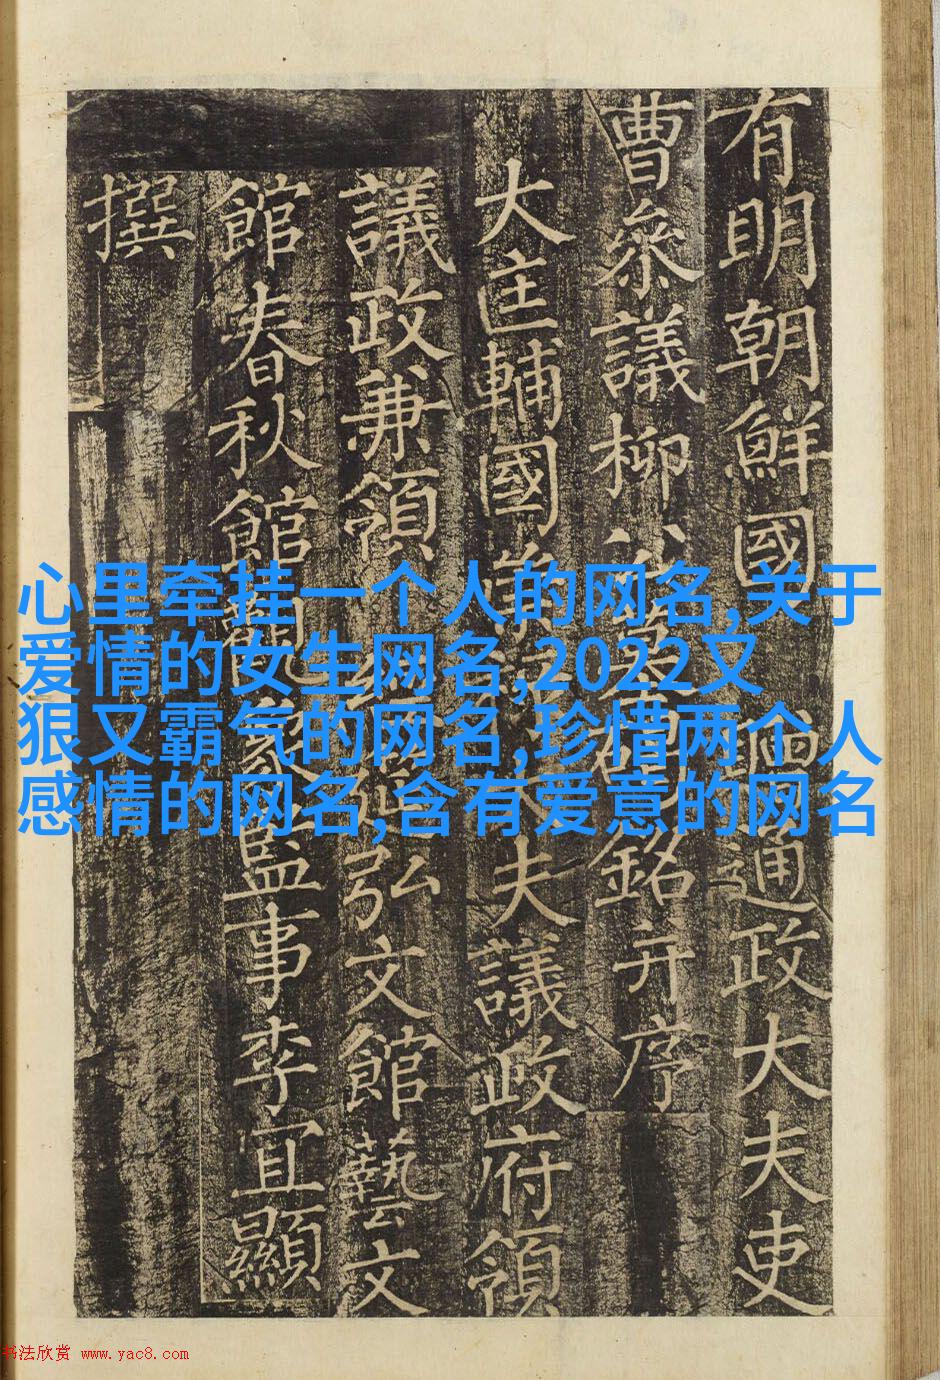 有明朝鮮國通政大夫吏
曹參議柳公銘并序
大匡輔國崇大夫議政府領
議政兼領弘文館藝文
館春秋館觀監事李宜顯
撰
心里牵挂一个人的网名,关于
爱情的女生网名,2022又
狠又霸气的网名,珍惜两个人
感情的网名,含有爱意的网名
书法欣赏 www.yac8.com